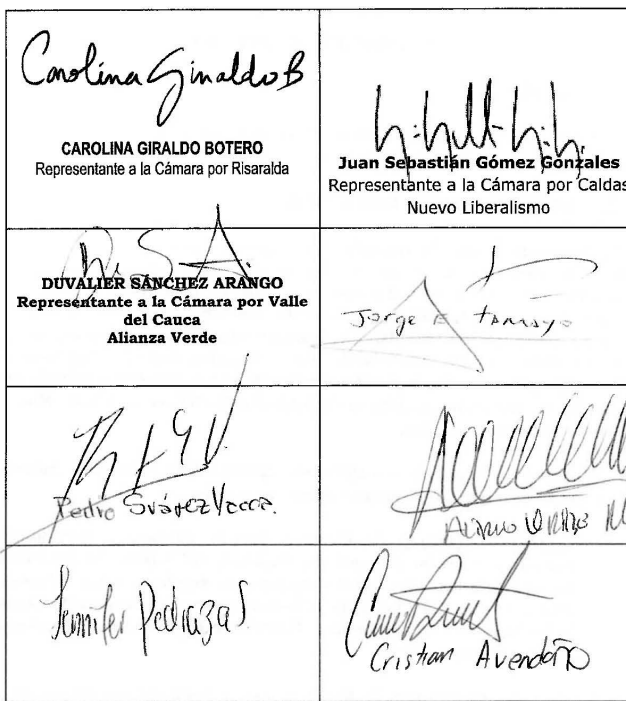 Carolina Giraldo B
CAROLINA GIRALDO BOTERO
Representante a la Cámara por Risaralda
Juan Sebastián Gómez Gonzales
Representante a la Cámara por Caldas
Nuevo Liberalismo
DUVALIER SÁNCHEZ ARANGO
Representante a la Cámara por Valle
del Cauca
Alianza Verde
Jorge E Tamayo
Pedro Suárez Vacca.
Jennifer Pedraza S
Cristian Avendaño